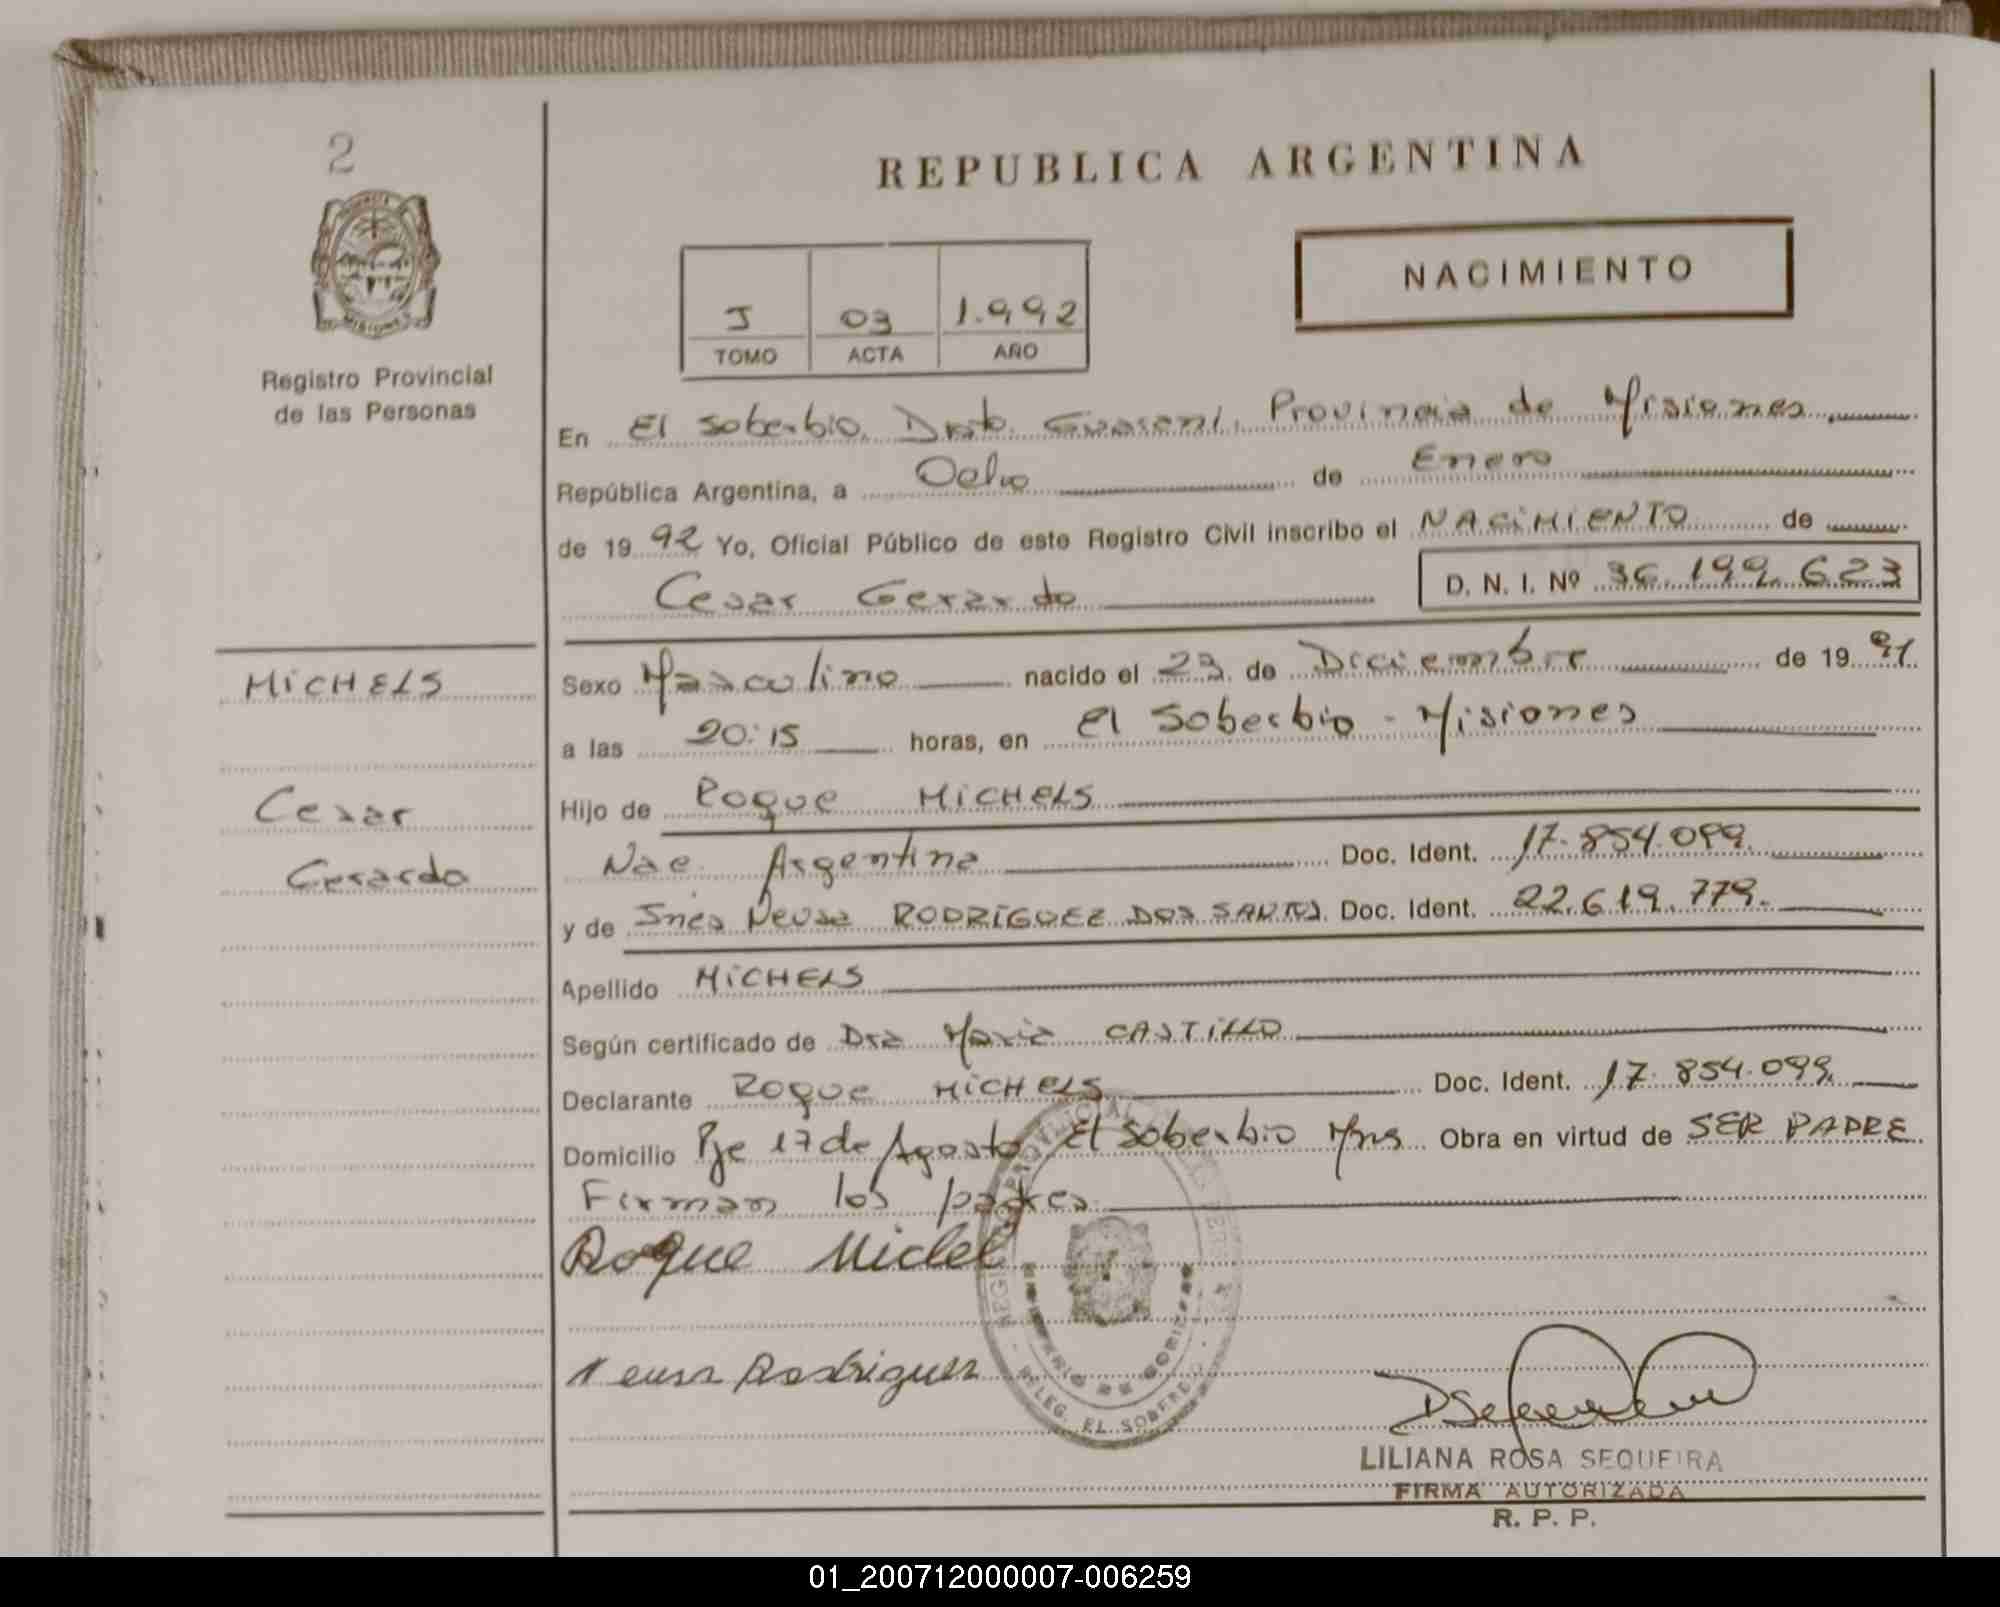 2
REPUBLICA ARGENTINA
NACIMIENTO
I 03 1.992
TOMO ACTA AÑO
Registro Provincial
de las Personas
En El Soberbio, Dpto. Guarani, Provincia de Misiones
República Argentina, a Ocho de Enero
de 19 92 Yo, Oficial Público de este Registro Civil inscribo el NACIMIENTO de
Cesar Gerardo D. N. I. Nº 36.199.623
MICHELS
Cesar
Gerardo
Sexo Masculino nacido el 23 de Diciembre de 19 91
a las 20:15 horas, en El Soberbio - Misiones
Hijo de Roque MICHELS
Nac. Argentina Doc. Ident. 17.854.099
y de Ines Neusa RODRIGUEZ DOS SANTOS Doc. Ident. 22.619.779.
Apellido MICHELS
Según certificado de Dra Maria CASTILLO
Declarante Roque MICHELS Doc. Ident. 17.854.099
Domicilio Pje 17 de Agosto El Soberbio Mns Obra en virtud de SER PADRE
Firman los padres
Roque Michel
Neusa Rodriguez
DELEG. EL SOBERBIO
LILIANA ROSA SEQUEIRA
FIRMA AUTORIZADA
R. P. P.
01_200712000007-006259